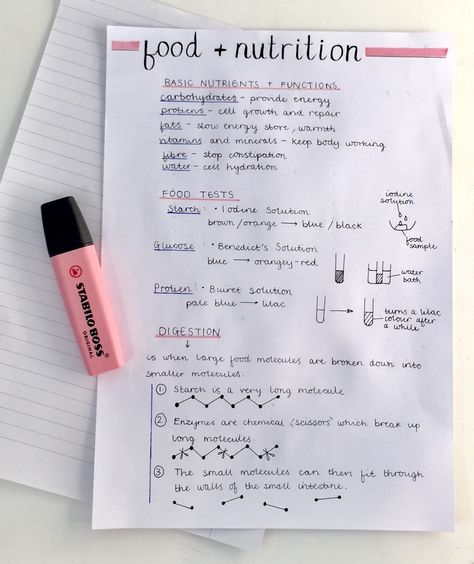 food + nutrition
BASIC NUTRIENTS + FUNCTIONS
carbohydrates - provide energy
protiens - cell growth and repair
fats - slow energy store, warmth
vitamins and minerals - keep body working
fibre - stop constipation
water - cell hydration
FOOD TESTS
Starch: • Iodine Solution
brown/orange → blue/black
iodine solution
food sample
Glucose: • Benedict's Solution
blue → orangey-red
water bath
Protien: • Buiret solution
pale blue → lilac
turns a lilac
colour after
a while
DIGESTION
is when large food molecules are broken down into
smaller molecules.
① Starch is a very long molecule
② Enzymes are chemical 'scissors' which break up
long molecules
③ The small molecules can then fit through
the walls of the small intestine.
STABILO BOSS
ORIGINAL